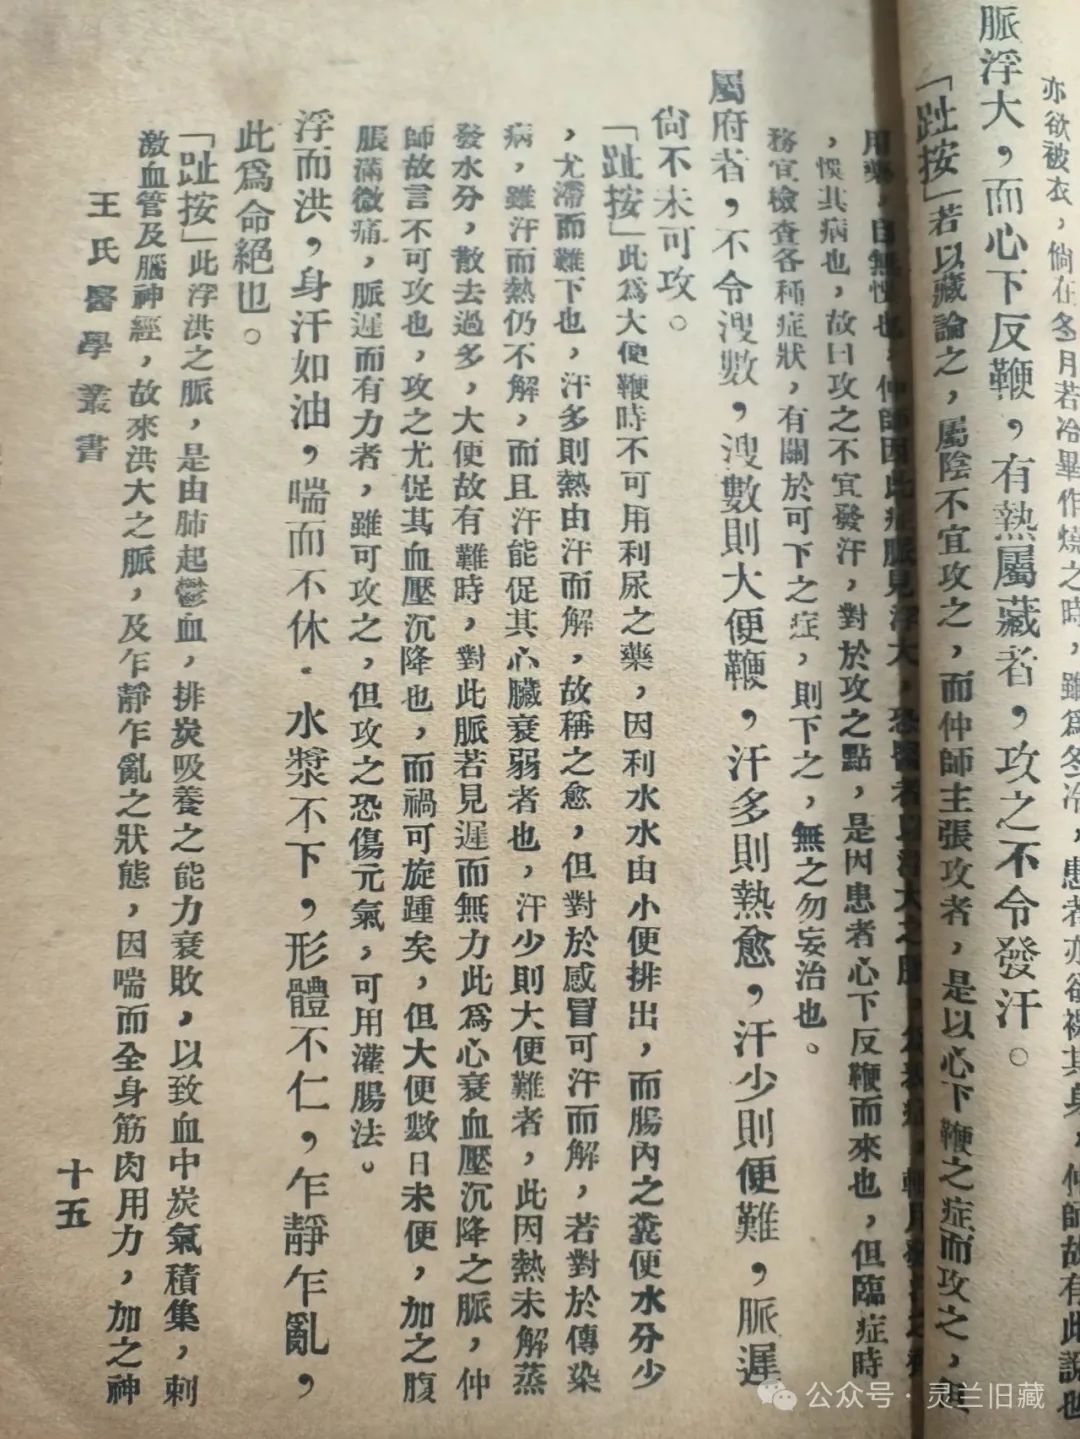 亦欲被衣，倘在冬月若冷畢作燒之時，雖爲冬冷，患者亦欲裸其身，仲師故有此說也
脈浮大，而心下反鞭，有熱屬藏者，攻之不令發汗。
「趾按」若以藏論之，屬陰不宜攻之，而仲師主張攻者，是以心下鞭之症而攻之，
用藥，自無悞也，仲師因此症脈見浮大，恐醫者以浮大之脈，
，悞其病也，故曰攻之不宜發汗，對於攻之點，是因患者心下反鞭而來也，但臨症時
務宜檢查各種症狀，有關於可下之症，則下之，無之勿妄治也。
屬府者，不令溲數，溲數則大便鞭，汗多則熱愈，汗少則便難，脈遲
尙不未可攻。
「趾按」此爲大便鞭時不可用利尿之藥，因利水水由小便排出，而腸內之糞便水分少
，尤滯而難下也，汗多則熱由汗而解，故稱之愈，但對於感冒可汗而解，若對於傳染
病，雖汗而熱仍不解，而且汗能促其心臟衰弱者也，汗少則大便難者，此因熱未解蒸
發水分，散去過多，大便故有難時，對此脈若見遲而無力此爲心衰血壓沉降之脈，仲
師故言不可攻也，攻之尤促其血壓沉降也，而禍可旋踵矣，但大便數日未便，加之腹
脹滿微痛，脈遲而有力者，雖可攻之，但攻之恐傷元氣，可用灌腸法。
浮而洪，身汗如油，喘而不休．水漿不下，形體不仁，乍靜乍亂，
此爲命絕也。
「趾按」此浮洪之脈，是由肺起鬱血，排炭吸養之能力衰敗，以致血中炭氣積集，刺
激血管及腦神經，故來洪大之脈，及乍靜乍亂之狀態，因喘而全身筋肉用力，加之神
王氏醫學叢書
十五
公众号·灵兰旧藏